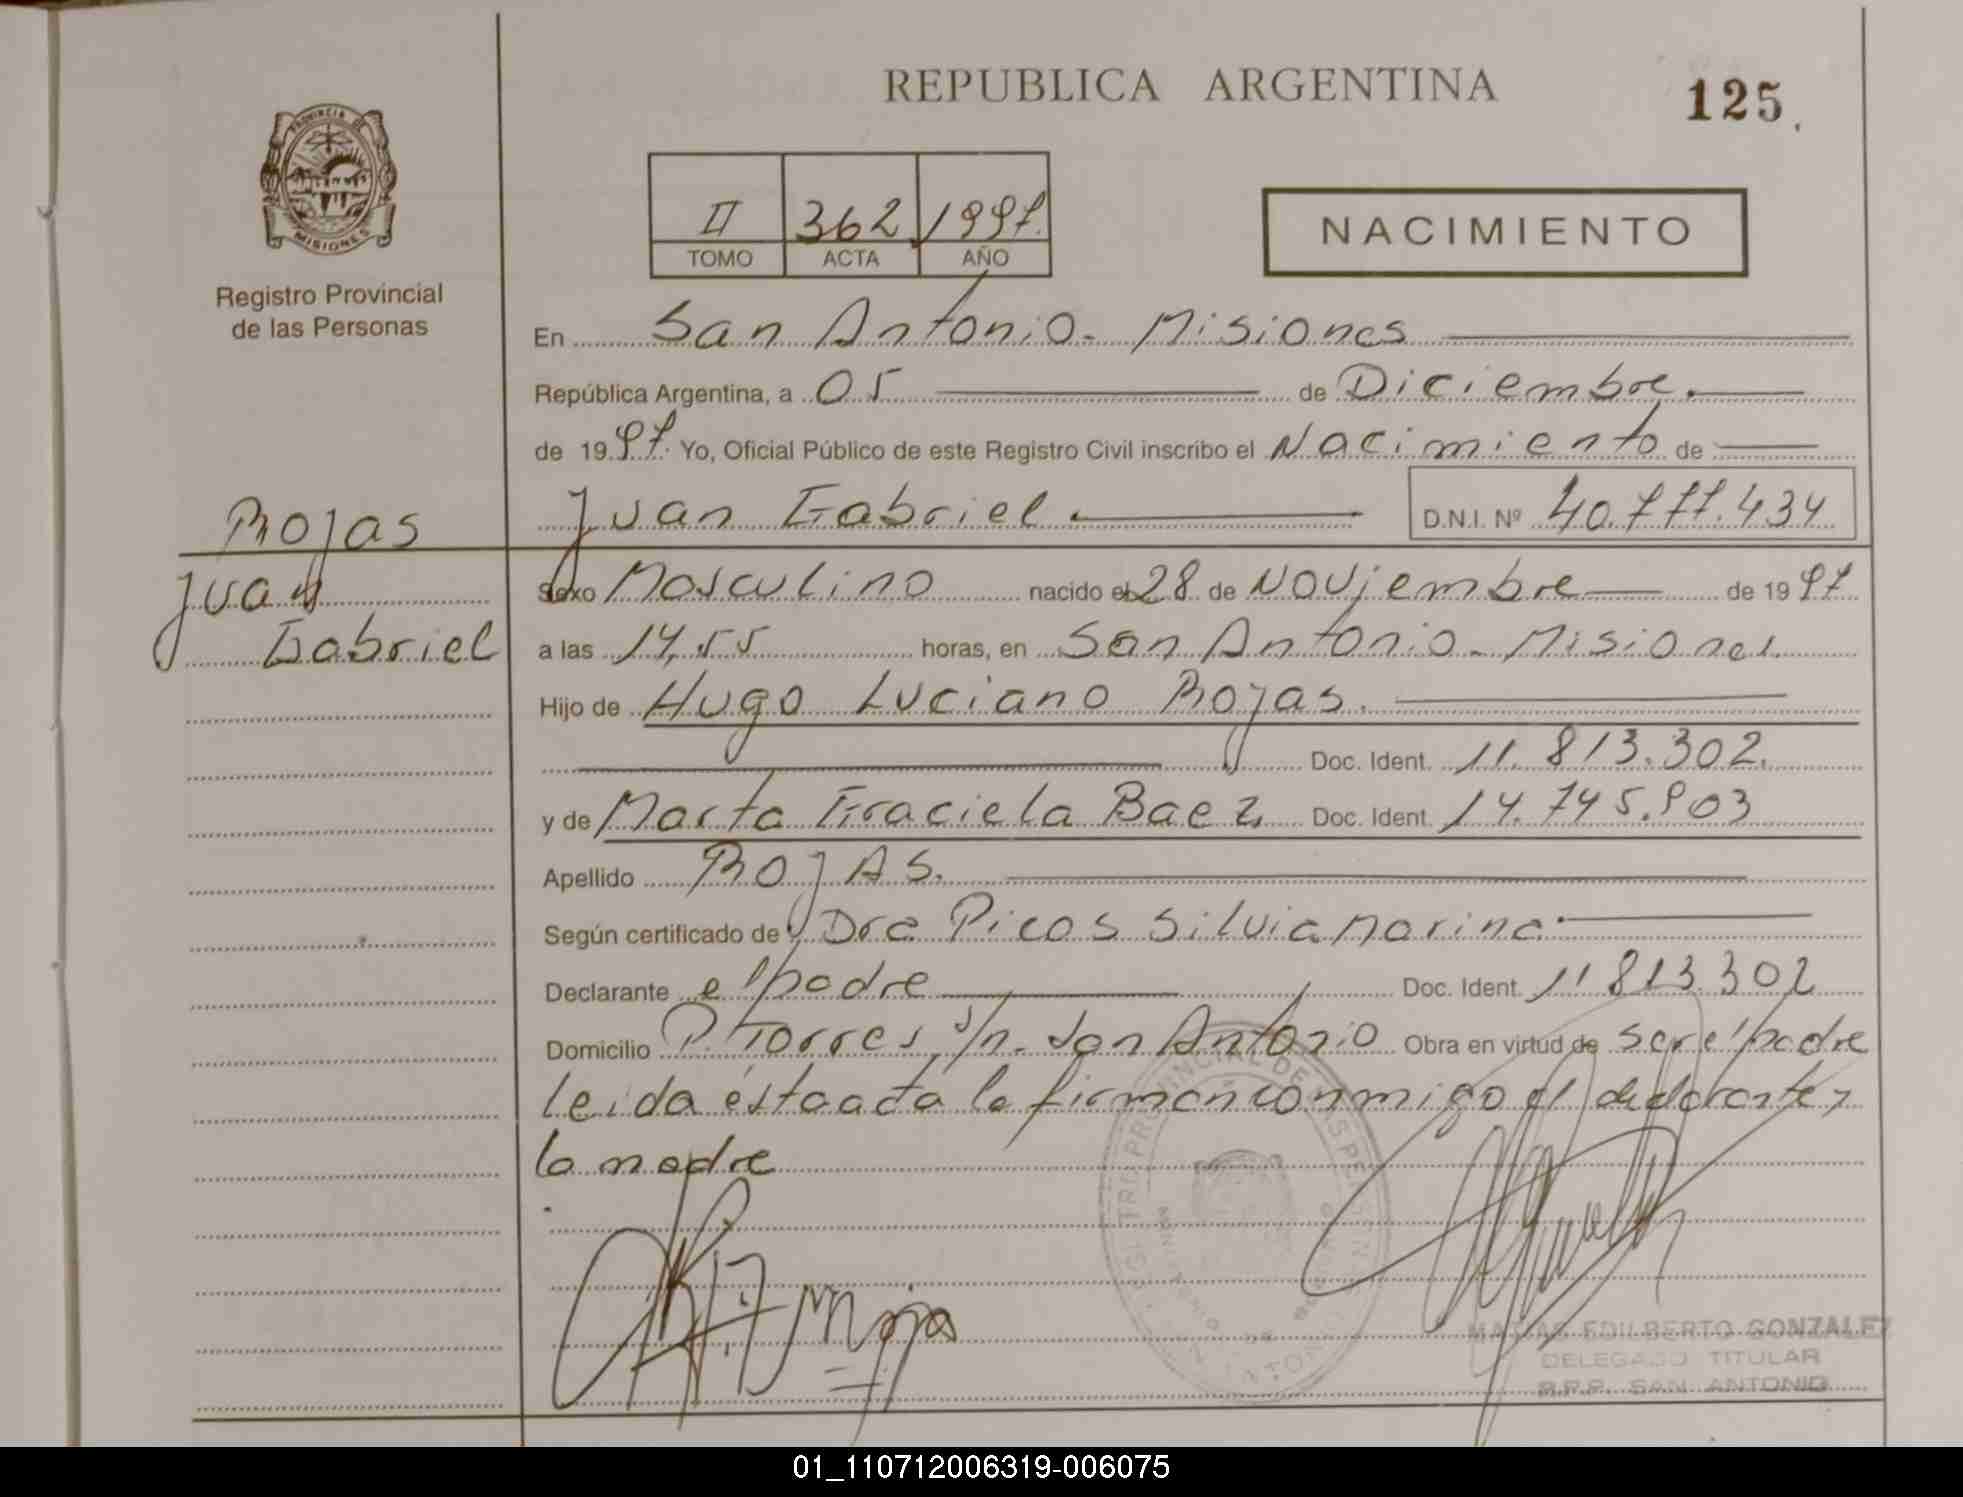 REPUBLICA ARGENTINA
125
PROVINCIA DE
MISIONES
Registro Provincial
de las Personas
II 362 1997.
TOMO ACTA AÑO
NACIMIENTO
En San Antonio - Misiones
República Argentina, a 05 de Diciembre.
de 1997. Yo, Oficial Público de este Registro Civil inscribo el Nacimiento de
Juan Gabriel. D.N.I. Nº 40.777.434
Rojas
Juan
Gabriel
Sexo Masculino nacido el 28 de Noviembre de 1997
a las 14,55 horas, en San Antonio - Misiones.
Hijo de Hugo Luciano Rojas.
Doc. Ident. 11.813.302.
y de Marta Graciela Baez Doc. Ident. 14.745.903
Apellido ROJAS.
Según certificado de Dra Picos Silvia Marina.
Declarante el padre Doc. Ident. 11813.302
Domicilio P. Torres s/n. San Antonio Obra en virtud de ser el padre
leida esta acta la firman conmigo el declarante y
la madre
MATIAS EDILBERTO GONZALEZ
DELEGADO TITULAR
R.P.P. SAN ANTONIO
01_110712006319-006075